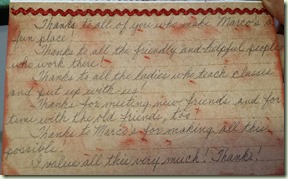 Thanks to all of you who make Marco's a
fun place!
Thanks to all the friendly and helpful people
who work there!
Thanks to all the ladies who teach classes
and put up with us!
Thanks for meeting new friends and for
time with the old friends, too!
Thanks to Marco's for making all this
possible!
I value all this very much! Thanks!